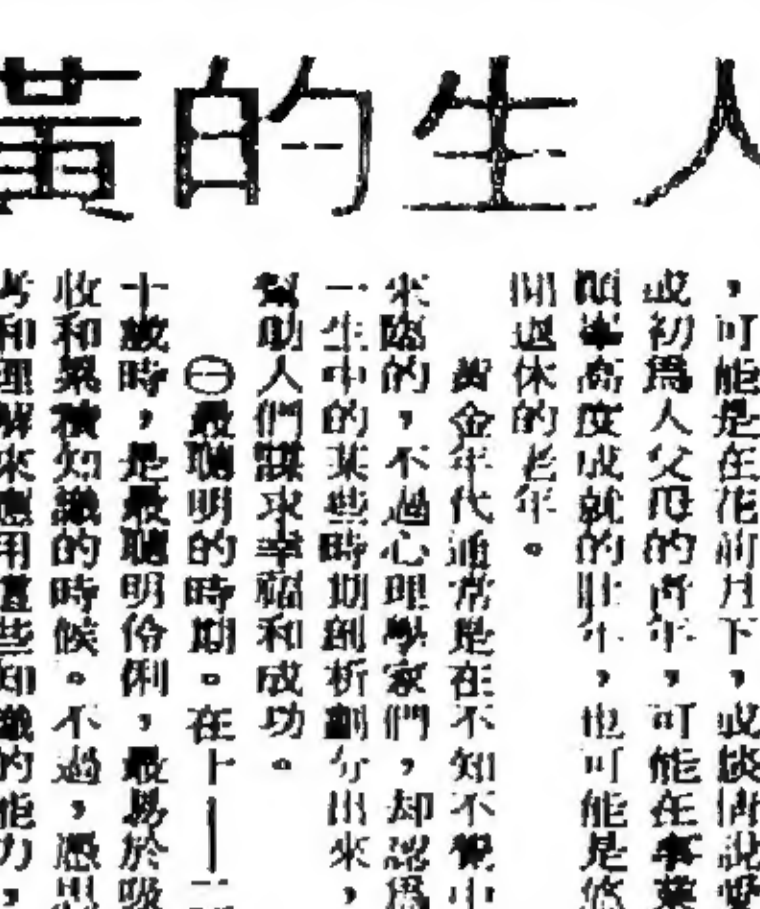 人生的黃
，可能是在花前月下，或談情說愛
或初爲人父母的青年，可能在事業
顛峯高度成就的壯年，也可能是悠
閒退休的老年。
黃金年代通常是在不知不覺中
來臨的，不過心理學家們，却認爲
一生中的某些時期劃分出來，
幫助人們謀求幸福和成功。
㊀最聰明的時期。在十—二
十歲時，是最聰明伶俐，最易於吸
收和累積知識的時候。不過，憑
考和理解來應用這些知識的能力，